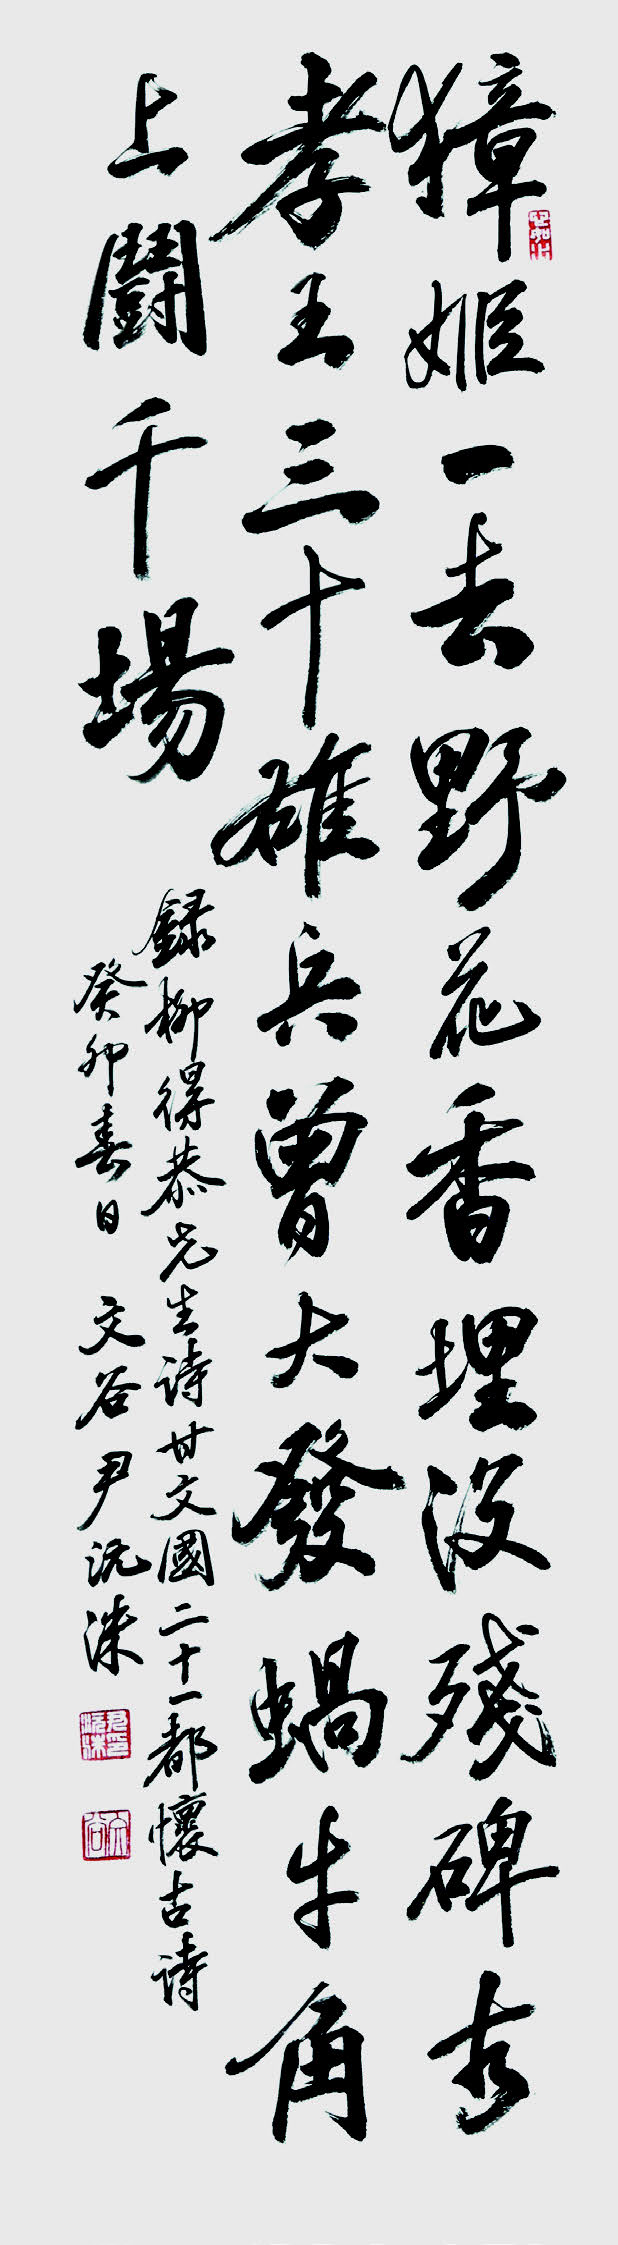 獐姬一去野花香埋沒殘碑古
孝王三十雄兵曾大發蝸牛角
上鬪千場
錄柳得恭先生詩甘文國二十一都懷古詩
癸卯春日 文谷尹沇洙
文谷